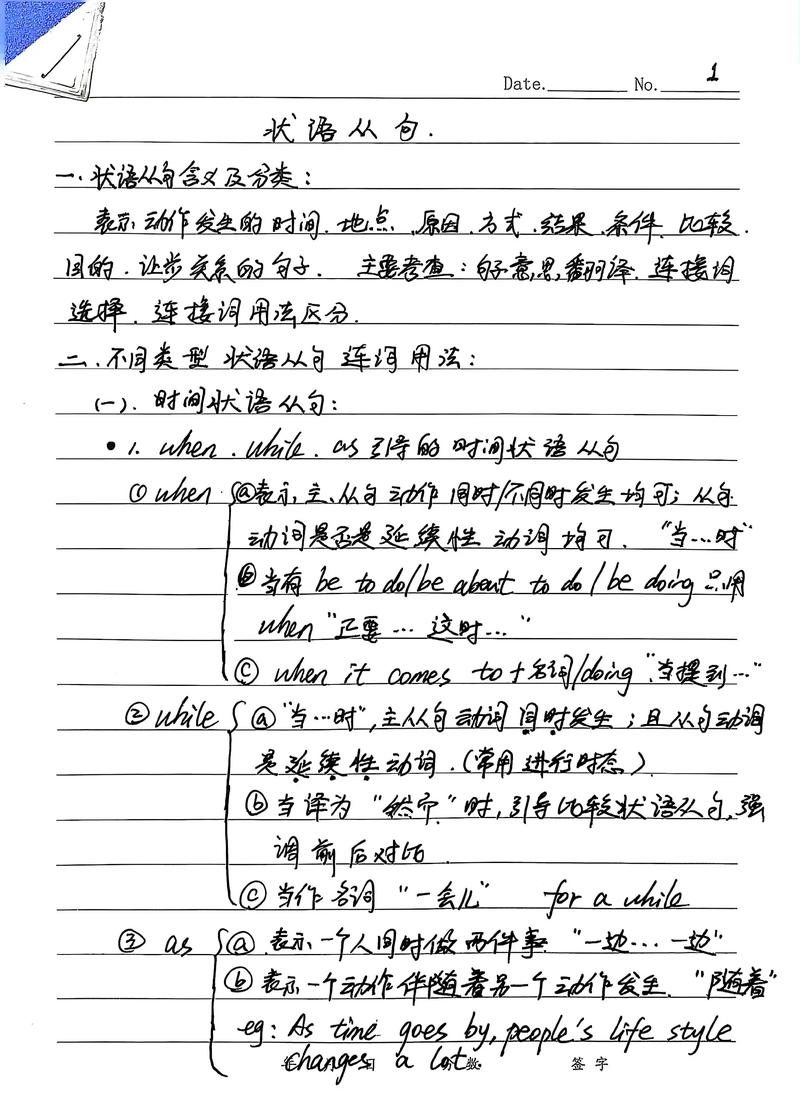 Date. No. 1
状语从句.
一.状语从句含义及分类：
表示动作发生的时间.地点.原因.方式.结果.条件.比较.
目的.让步关系的句子. 主要考查：句子意思翻译.连接词
选择.连接词用法区分.
二.不同类型状语从句连词用法：
(一).时间状语从句：
• 1. when.while.as引导的时间状语从句
① when ⓐ表示主、从句动作同时/不同时发生均可；从句
动词是否是延续性动词均可. “当…时”
ⓑ当有 be to do/be about to do/be doing 只用
when “正要…这时…”
ⓒ when it comes to+名词/doing “当提到…”
② while ⓐ“当…时”,主从句动词同时发生；且从句动词
是延续性动词.(常用进行时态)
ⓑ当译为“然而”时,引导比较状语从句,强
调前后对比.
ⓒ当作名词“一会儿” for a while
③ as ⓐ.表示一个人同时做两件事 “一边…一边”
ⓑ表示一个动作伴随着另一个动作发生.“随着”
eg: As time goes by, people's life style
changes a lot.
签字